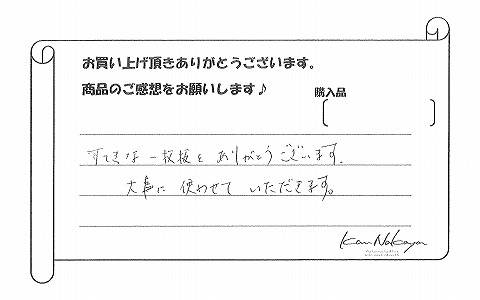 お買い上げ頂きありがとうございます。
商品のご感想をお願いします♪
購入品
すてきな一枚板をありがとうございます.
大事に使わせていただきます。
Kan Nakaya